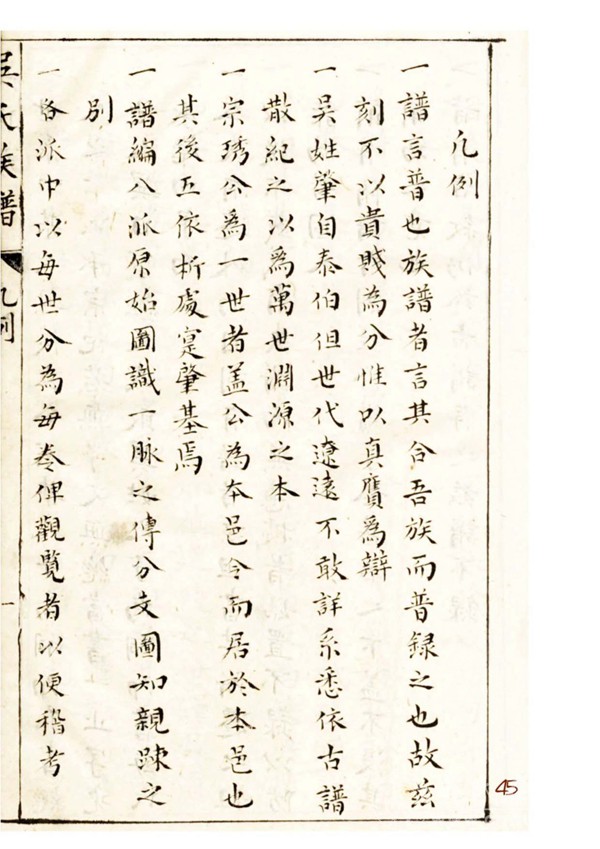 凡例
一譜言普也族譜者言其合吾族而普録之也故茲
刻不以貴賤為分惟以真贗為辯
一吳姓肇自泰伯但世代遼遠不敢詳系悉依古譜
散紀之以為萬世淵源之本
一宗琇公為一世者盖公為本邑令而居於本邑也
其後五依析處寔肇基焉
一譜編八派原始圖識一脉之傳分支圖知親踈之
別
一各派中以每世分為每卷俾觀覽者以便稽考
吳氏族譜 凡例 一
45